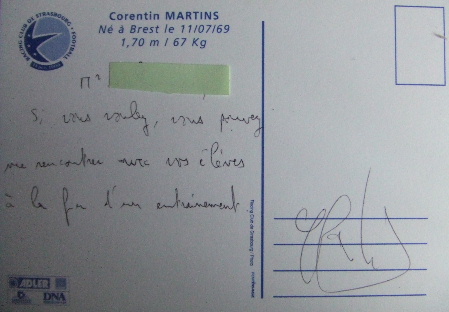 RACING CLUB DE STRASBOURG - FOOTBALL
Corentin MARTINS
Né à Brest le 11/07/69
1,70 m / 67 Kg
Mr
Si vous voulez, vous pouvez
me rencontrer avec vos élèves
à la fin d'un entrainement
Racing Club de Strasbourg
ADLER
DNA